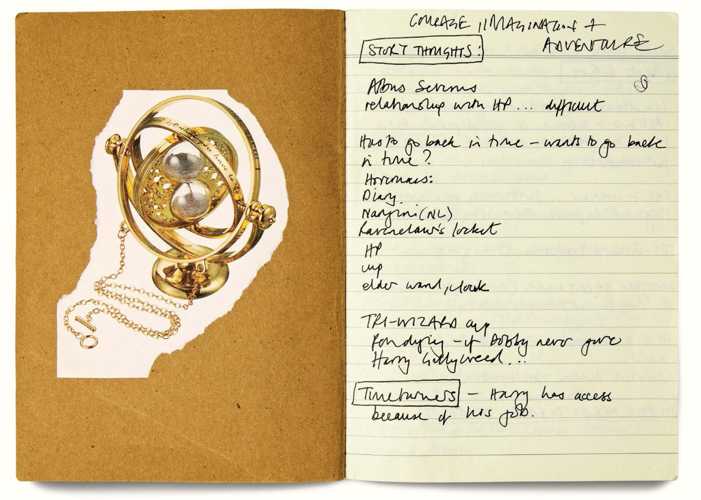 COURAGE, IMAGINATION +
ADVENTURE
STORY THOUGHTS:
Albus Severus
relationship with HP ... difficult
Has to go back in time – wants to go back
in time?
Horcruxes:
Diary
Nangini (NL)
Ravenclaw's locket
HP
cup
elder wand, cloak
TRI-WIZARD cup
Ron dying – if Dobby never gave
Harry Gillyweed...
Timeturners – Harry has access
because of his job.